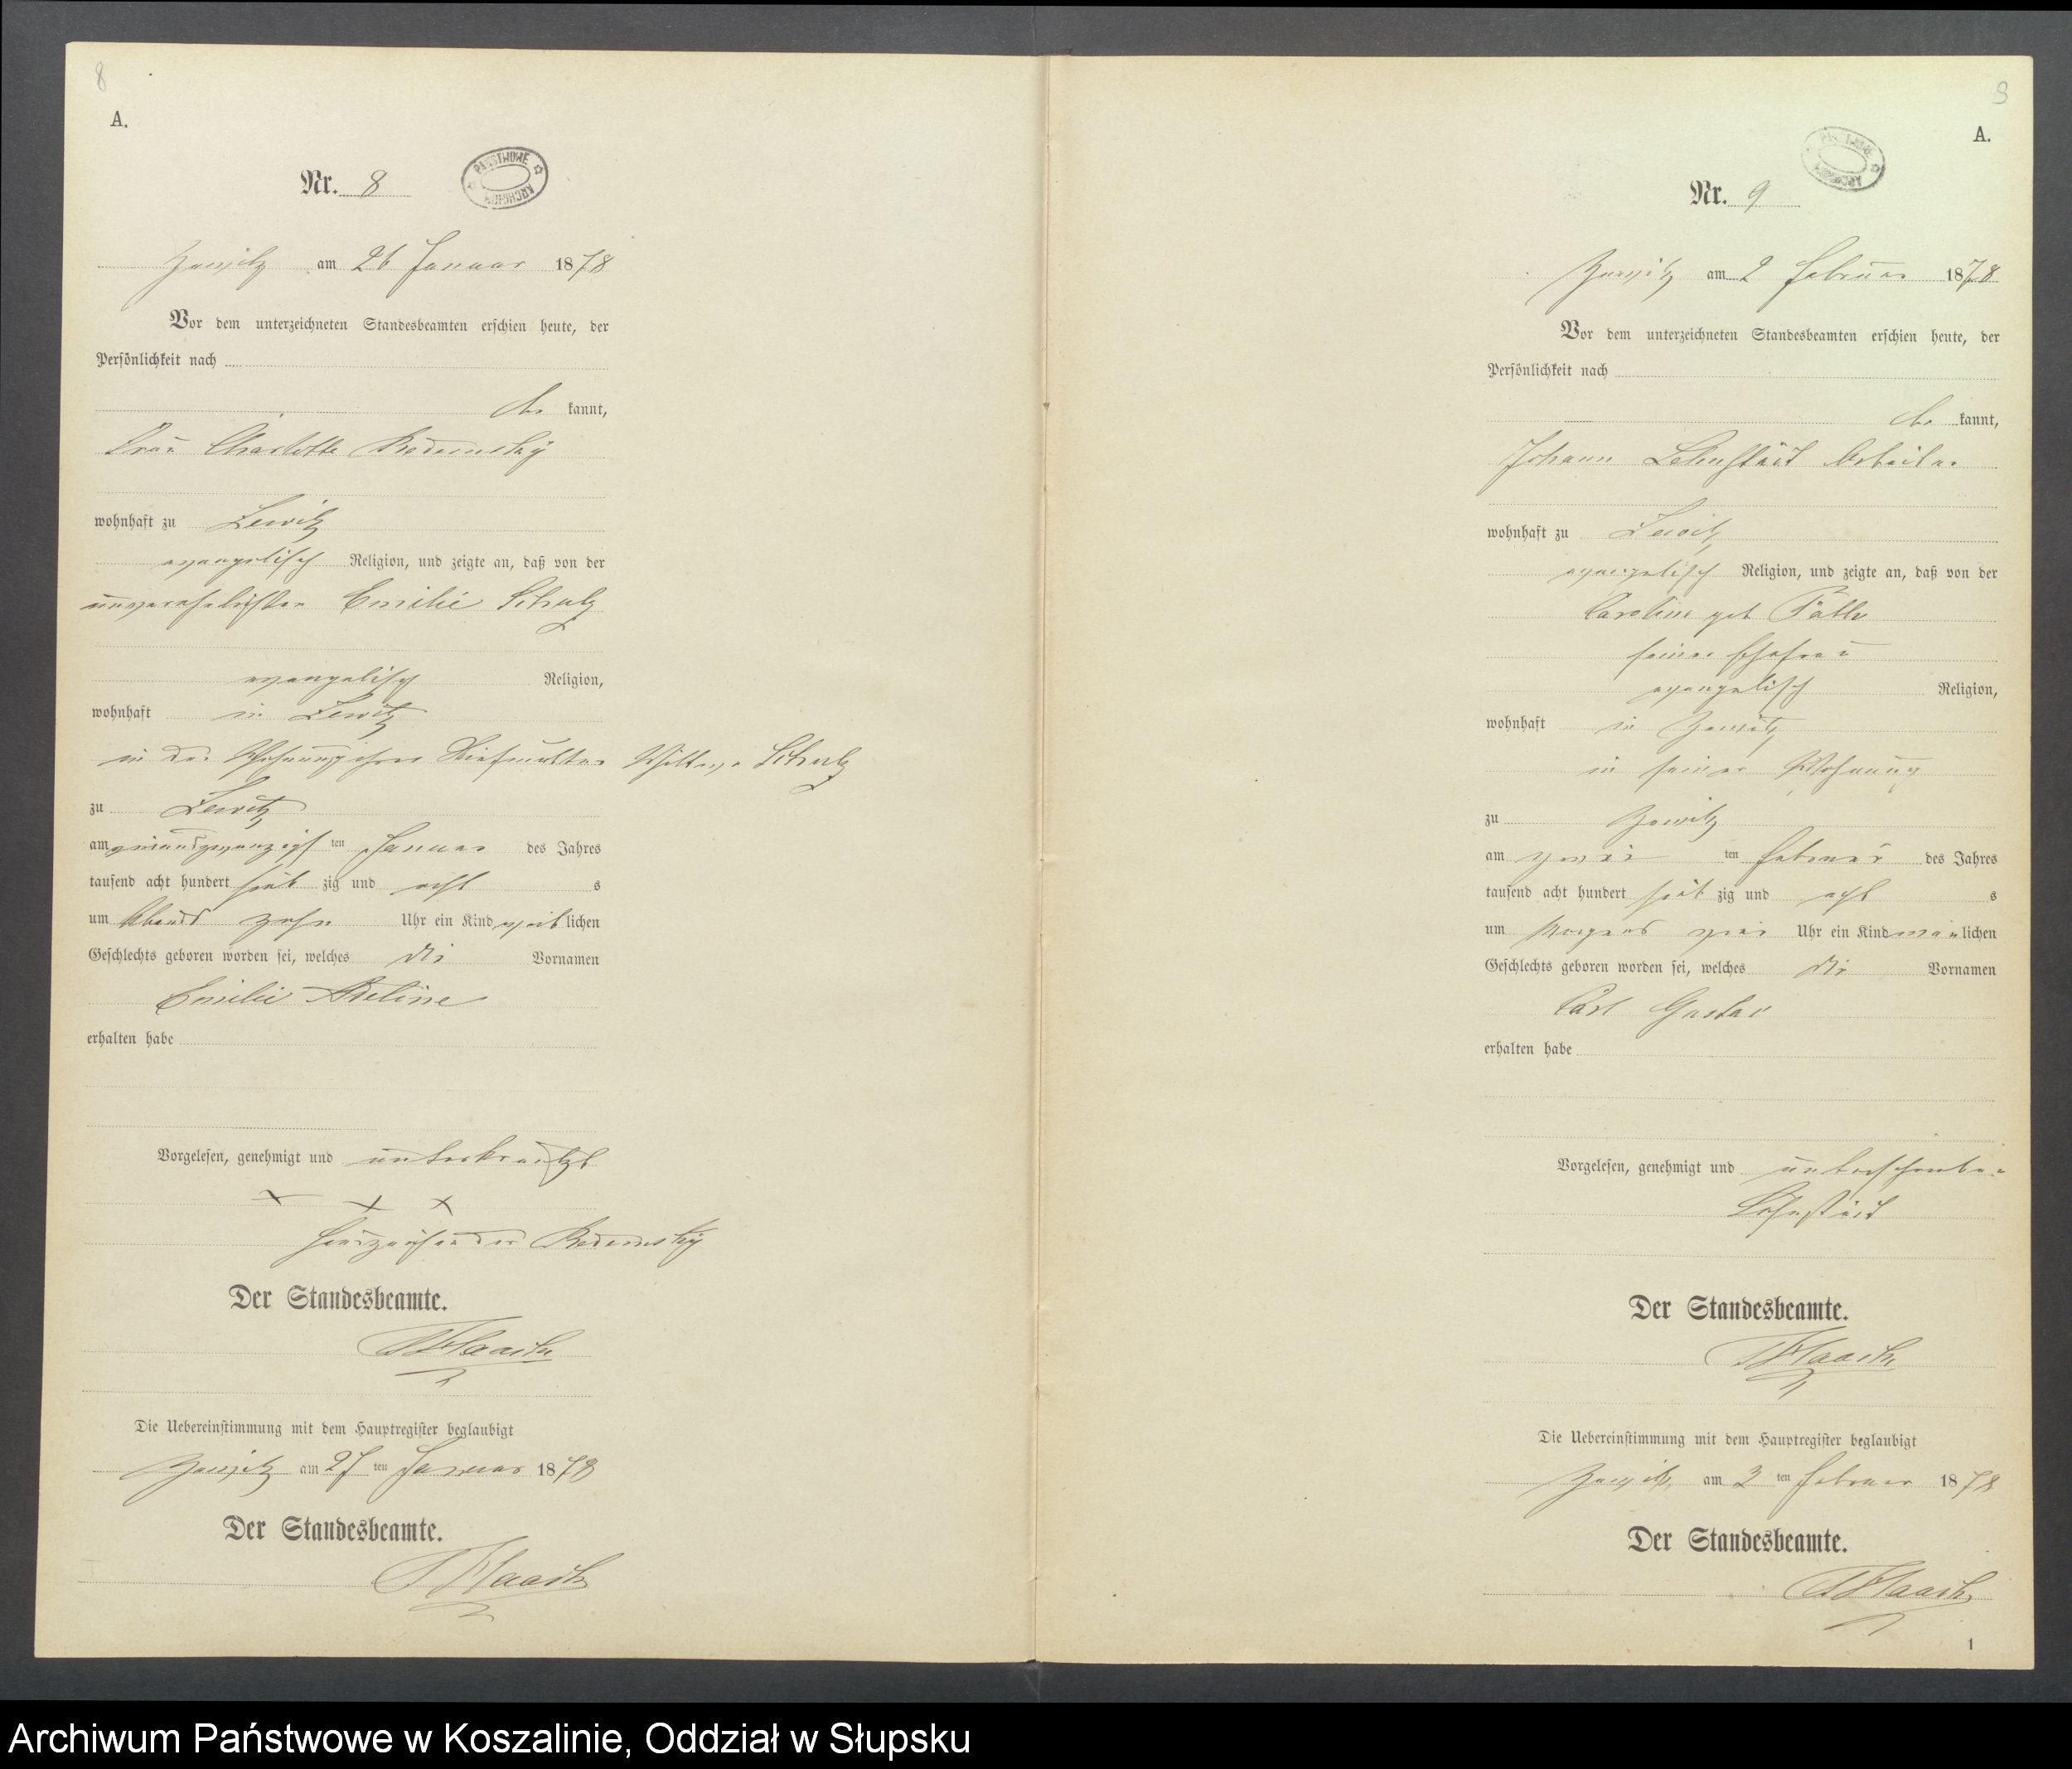 8
A.
Nr. 8
PAŃSTWOWE ARCHIWUM
am 26 Januar 1878
Vor dem unterzeichneten Standesbeamten erschien heute, der
Persönlichkeit nach
be kannt,
Frau Charlotte
wohnhaft zu
evangelisch Religion, und zeigte an, daß von der
unverehelichten Emilie Schulz
evangelisch Religion,
wohnhaft in
in der Wohnung ihrer Wittwe Schulz
zu
am ten Januar des Jahres
tausend acht hundert sieb zig und acht s
um Abend zehn Uhr ein Kind weiblichen
Geschlechts geboren worden sei, welches die Vornamen
Emilie Adeline
erhalten habe
Vorgelesen, genehmigt und unterkreutzt
x x x
Handzeichen der
Der Standesbeamte.
Haack
Die Uebereinstimmung mit dem Hauptregister beglaubigt
am 27 ten Januar 1878
Der Standesbeamte.
Haack
9
A.
Nr. 9
PAŃSTWOWE ARCHIWUM
am 2 Februar 1878
Vor dem unterzeichneten Standesbeamten erschien heute, der
Persönlichkeit nach
be kannt,
Johann Arbeiter
wohnhaft zu
evangelisch Religion, und zeigte an, daß von der
Caroline geb
seiner Ehefrau
evangelisch Religion,
wohnhaft in
in seiner Wohnung
zu
am zwei ten Februar des Jahres
tausend acht hundert sieb zig und acht s
um Morgens Uhr ein Kind männlichen
Geschlechts geboren worden sei, welches die Vornamen
Carl Gustav
erhalten habe
Vorgelesen, genehmigt und unterschrieben
Der Standesbeamte.
Haack
Die Uebereinstimmung mit dem Hauptregister beglaubigt
am 3 ten Februar 1878
Der Standesbeamte.
Haack
1
Archiwum Państwowe w Koszalinie, Oddział w Słupsku